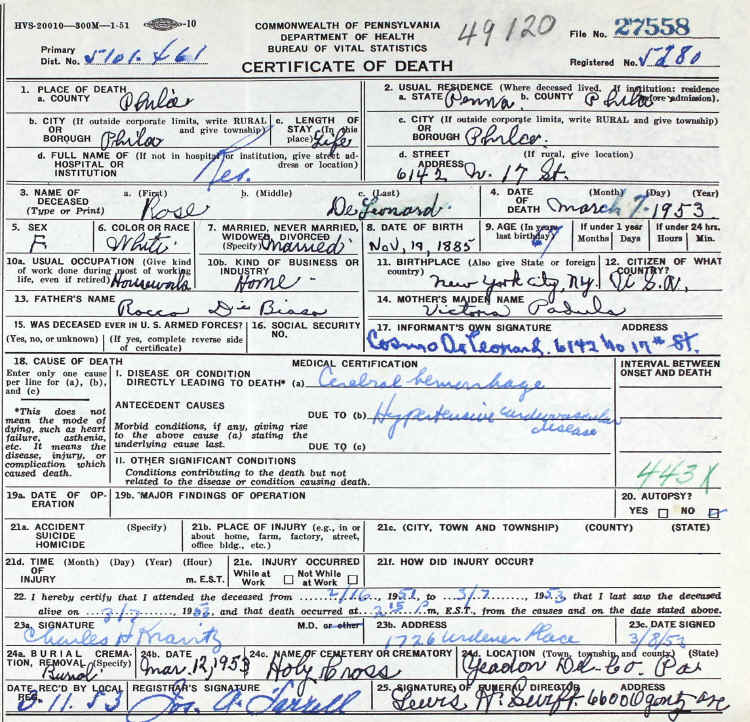 HVS-20010—300M—1-51 -10
COMMONWEALTH OF PENNSYLVANIA
DEPARTMENT OF HEALTH
BUREAU OF VITAL STATISTICS
CERTIFICATE OF DEATH
49120
File No. 27558
Primary
Dist. No. 5101.461
Registered No. 5280
1. PLACE OF DEATH
a. COUNTY Phila
2. USUAL RESIDENCE (Where deceased lived. If institution: residence before admission).
a. STATE Penna. b. COUNTY Phila
b. CITY (If outside corporate limits, write RURAL and give township)
OR
BOROUGH Phila
c. LENGTH OF STAY (In this place) Life
c. CITY (If outside corporate limits, write RURAL and give township)
OR
BOROUGH Phila.
d. FULL NAME OF (If not in hospital or institution, give street address or location)
HOSPITAL OR
INSTITUTION Res.
d. STREET (If rural, give location)
ADDRESS 6142 N. 17 St.
3. NAME OF DECEASED (Type or Print)
a. (First) b. (Middle) c. (Last)
Rose De Leonard
4. DATE OF DEATH (Month) (Day) (Year)
March 7 - 1953
5. SEX
F
6. COLOR OR RACE
White
7. MARRIED, NEVER MARRIED, WIDOWED, DIVORCED (Specify) Married
8. DATE OF BIRTH
Nov, 19, 1885
9. AGE (In years last birthday) 67
If under 1 year
Months Days
If under 24 hrs.
Hours Min.
10a. USUAL OCCUPATION (Give kind of work done during most of working life, even if retired) Housework
10b. KIND OF BUSINESS OR INDUSTRY
Home
11. BIRTHPLACE (Also give State or foreign country)
New York City, N.Y.
12. CITIZEN OF WHAT COUNTRY?
U S A.
13. FATHER'S NAME
Rocco Di Biaso
14. MOTHER'S MAIDEN NAME
Victoria Padula
15. WAS DECEASED EVER IN U. S. ARMED FORCES?
(Yes, no, or unknown) (If yes, complete reverse side of certificate)
16. SOCIAL SECURITY NO.
17. INFORMANT'S OWN SIGNATURE ADDRESS
Cosmo De Leonard. 6142 No 17th St.
18. CAUSE OF DEATH
Enter only one cause per line for (a), (b), and (c)
*This does not mean the mode of dying, such as heart failure, asthenia, etc. It means the disease, injury, or complication which caused death.
MEDICAL CERTIFICATION
I. DISEASE OR CONDITION
DIRECTLY LEADING TO DEATH* (a) Cerebral hemorrhage
ANTECEDENT CAUSES
Morbid conditions, if any, giving rise to the above cause (a) stating the underlying cause last.
DUE TO (b) Hypertensive cardiovascular disease
DUE TO (c)
II. OTHER SIGNIFICANT CONDITIONS
Conditions contributing to the death but not related to the disease or condition causing death.
INTERVAL BETWEEN ONSET AND DEATH
443X
19a. DATE OF OPERATION
19b. MAJOR FINDINGS OF OPERATION
20. AUTOPSY?
YES NO
21a. ACCIDENT (Specify)
SUICIDE
HOMICIDE
21b. PLACE OF INJURY (e.g., in or about home, farm, factory, street, office bldg., etc.)
21c. (CITY, TOWN AND TOWNSHIP) (COUNTY) (STATE)
21d. TIME (Month) (Day) (Year) (Hour)
OF
INJURY m. E.ST.
21e. INJURY OCCURRED
While at Work Not While at Work
21f. HOW DID INJURY OCCUR?
22. I hereby certify that I attended the deceased from 2/16, 1951, to 3/7, 1953 that I last saw the deceased
alive on 3/7, 1953, and that death occurred at 2:15 P m, E.ST., from the causes and on the date stated above.
23a. SIGNATURE M.D. or other
Charles H Kravitz
23b. ADDRESS
1726 Widener Place
23c. DATE SIGNED
3/8/53
24a. BURIAL, CREMATION, REMOVAL (Specify)
Burial
24b. DATE
Mar. 12, 1953
24c. NAME OF CEMETERY OR CREMATORY
Holy Cross
24d. LOCATION (Town, township and county) (State)
Yeadon Del. Co. Pa
DATE REC'D BY LOCAL REG.
3-11.53
REGISTRAR'S SIGNATURE
Jos. A. Farrell
25. SIGNATURE OF FUNERAL DIRECTOR ADDRESS
Lewis H. Swift. 6600 Ogontz Ave